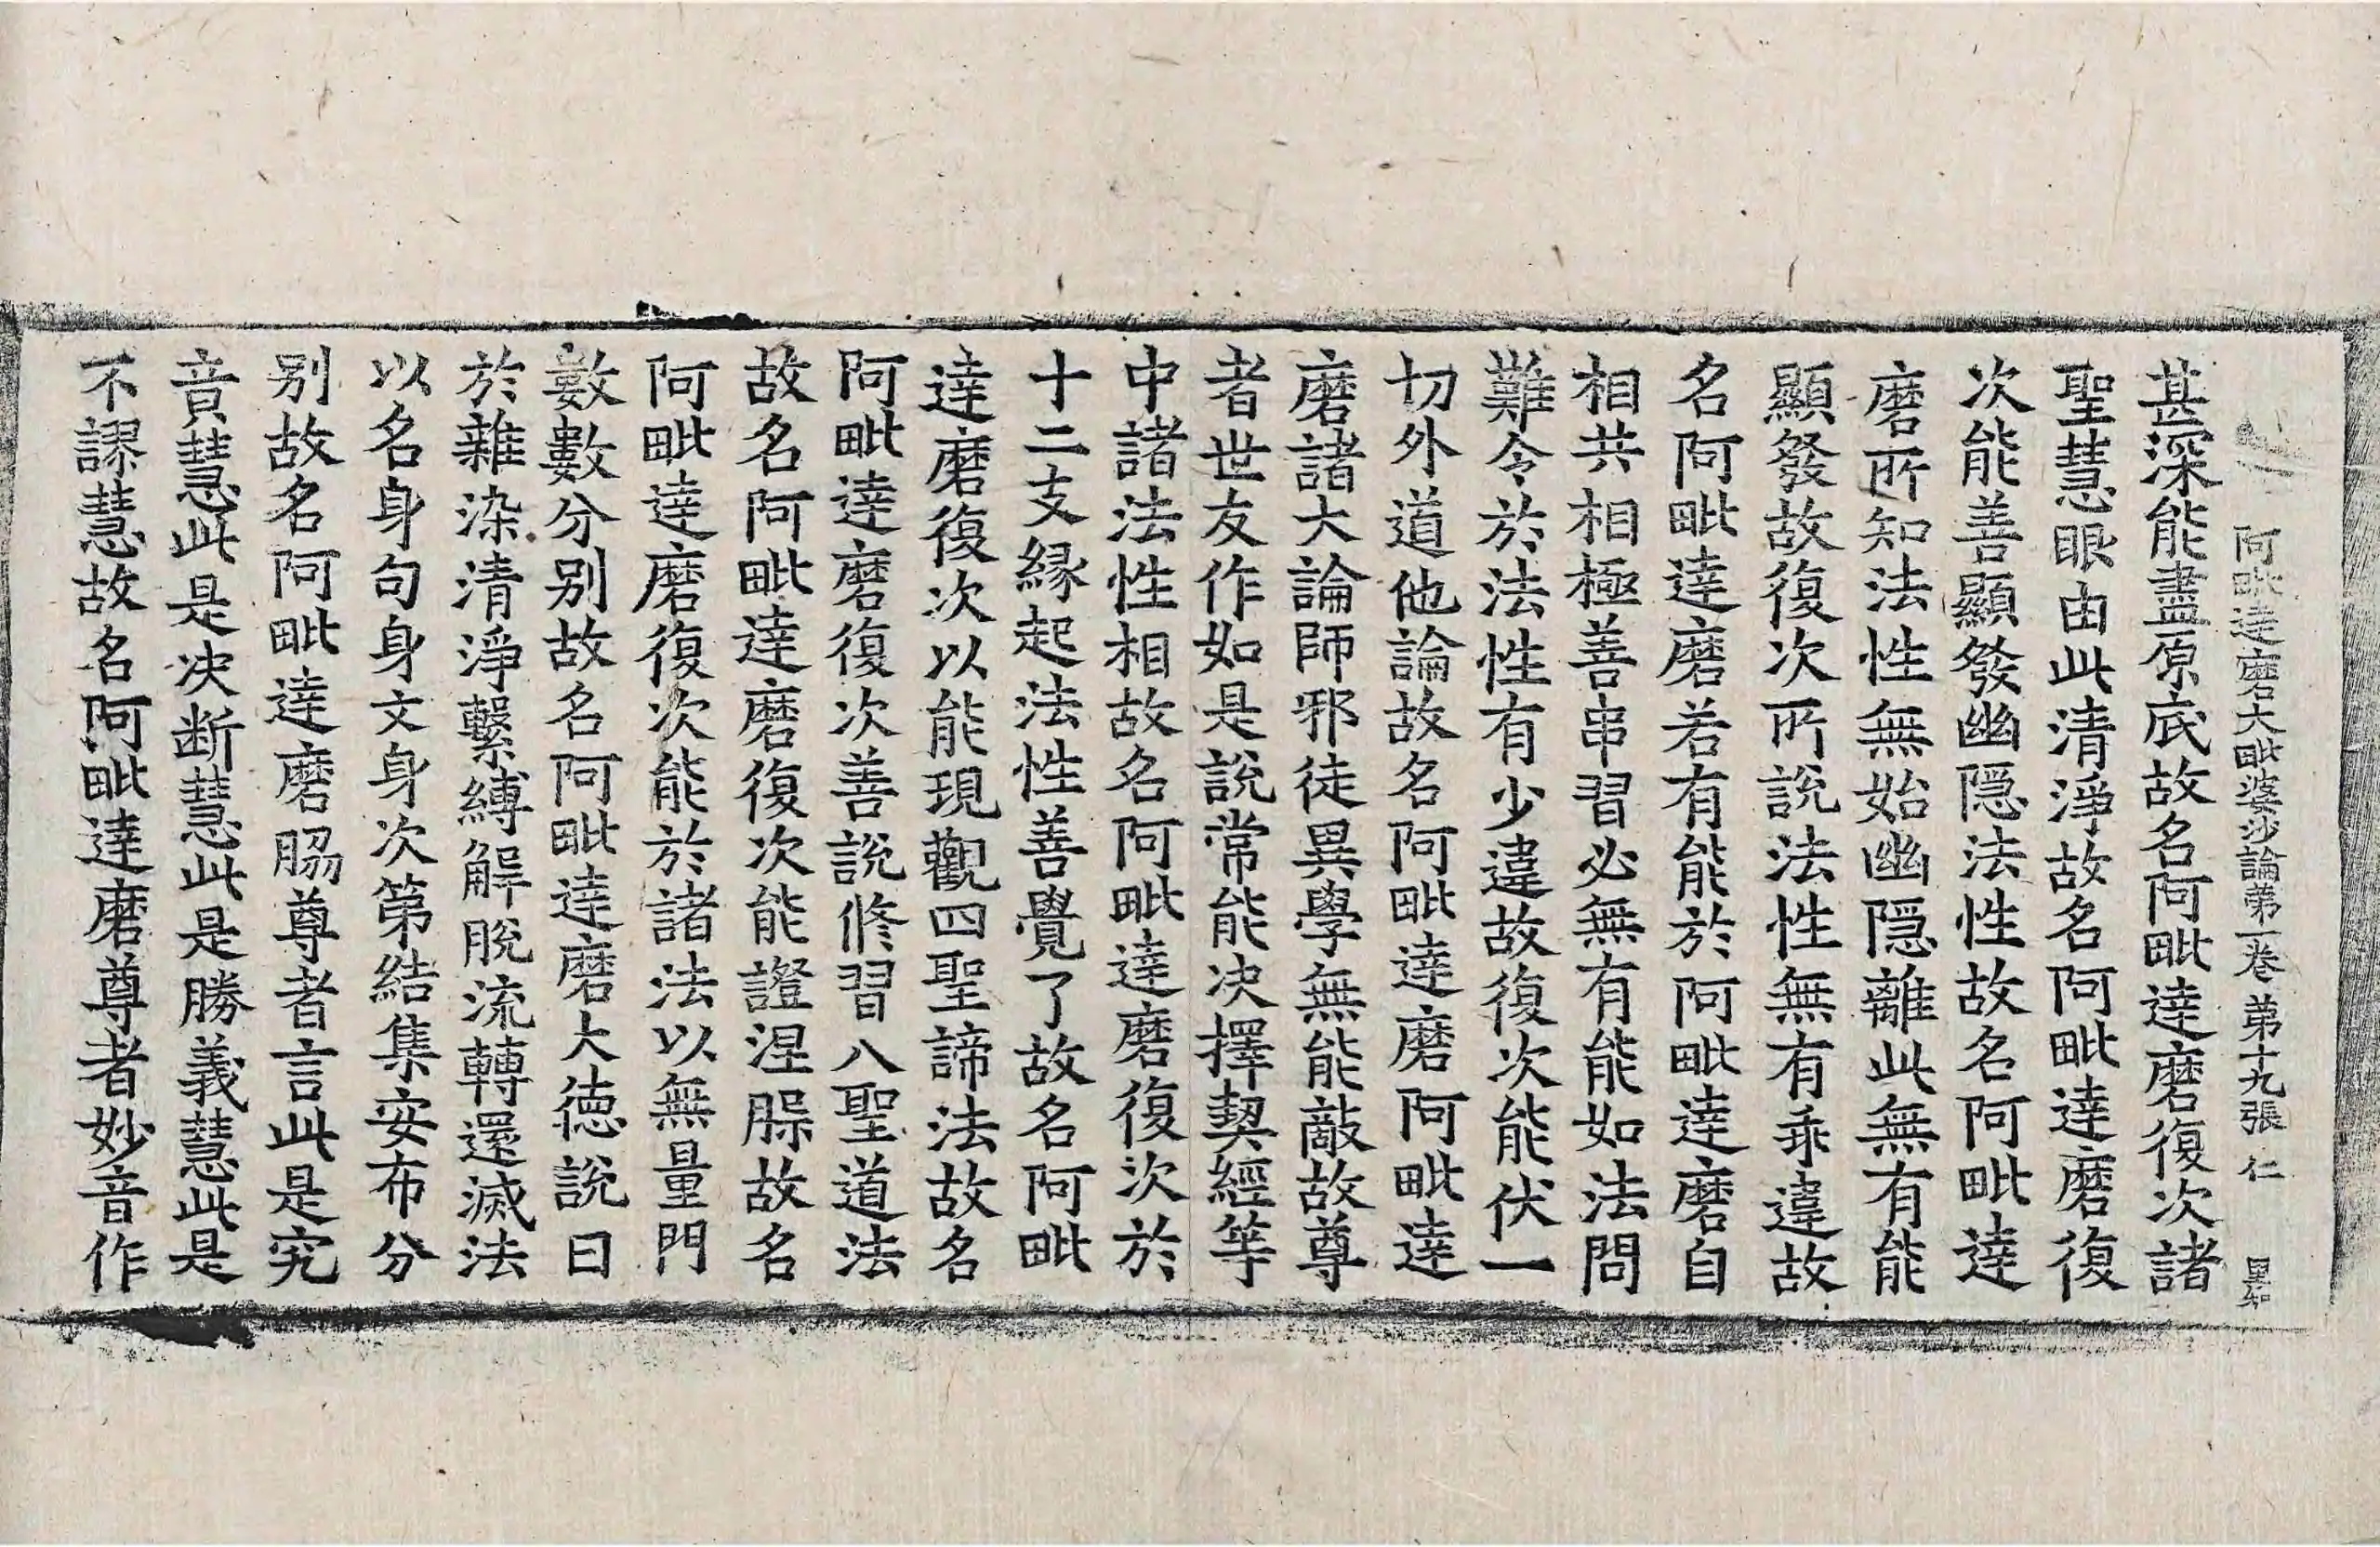 阿毗達磨大毗婆沙論第一卷 第十九張 仁
甚深能盡原底故名阿毗達磨復次諸
聖慧眼由此清淨故名阿毗達磨復
次能善顯發幽隱法性故名阿毗達
磨所知法性無始幽隱離此無有能
顯發故復次所說法性無有乖違故
名阿毗達磨若有能於阿毗達磨自
相共相極善串習必無有能如法問
難令於法性有少違故復次能伏一
切外道他論故名阿毗達磨阿毗達
磨諸大論師邪徒異學無能敵故尊
者世友作如是說常能決擇契經等
中諸法性相故名阿毗達磨復次於
十二支緣起法性善覺了故名阿毗
達磨復次以能現觀四聖諦法故名
阿毗達磨復次善說修習八聖道法
故名阿毗達磨復次能證涅槃故名
阿毗達磨復次能於諸法以無量門
數數分別故名阿毗達磨大德說曰
於雜染清淨繫縛解脫流轉還滅法
以名身句身文身次第結集安布分
別故名阿毗達磨脇尊者言此是究
竟慧此是決斷慧此是勝義慧此是
不謬慧故名阿毗達磨尊者妙音作